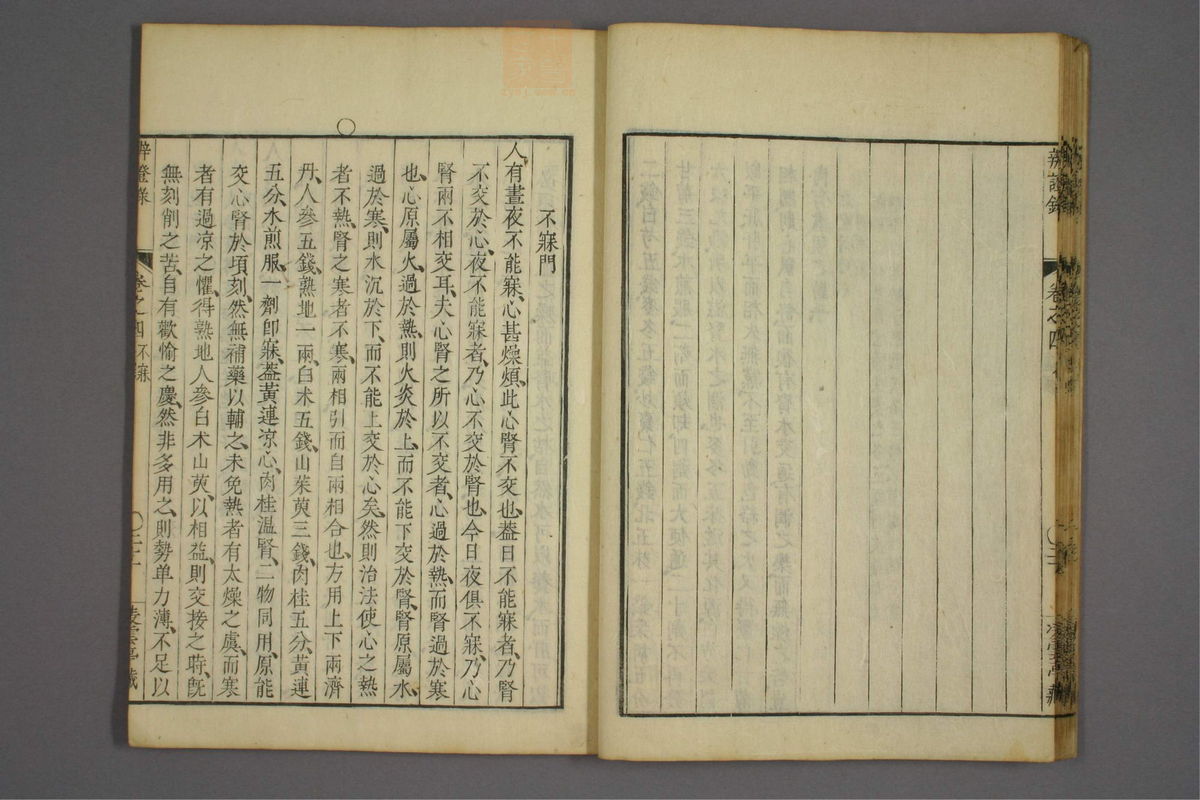 不寐門
人有晝夜不能寐、心甚燥煩、此心腎不交也、葢日不能寐者、乃腎
不交於心、夜不能寐者、乃心不交於腎也、今日夜俱不寐、乃心
腎兩不相交耳、夫心腎之所以不交者、心過於熱、而腎過於寒
也、心原屬火、過於熱、則火炎於上、而不能下交於腎、腎原屬水、
過於寒、則水沉於下、而不能上交於心矣、然則治法使心之熱
者不熱、腎之寒者不寒、兩相引而自兩相合也、方用上下兩濟
丹、人參五錢、熟地一兩、白朮五錢、山茱萸三錢、肉桂五分、黃連
五分、水煎服、一劑卽寐、葢黃連凉心、肉桂溫腎、二物同用、原能
交心腎於頃刻、然無補藥以輔之、未免熱者有太燥之虞、而寒
者有過凉之懼、得熟地人參白朮山萸、以相益、則交接之時、旣
無刻削之苦、自有歡愉之慶、然非多用之、則勢单力薄、不足以
卷之四 不寐